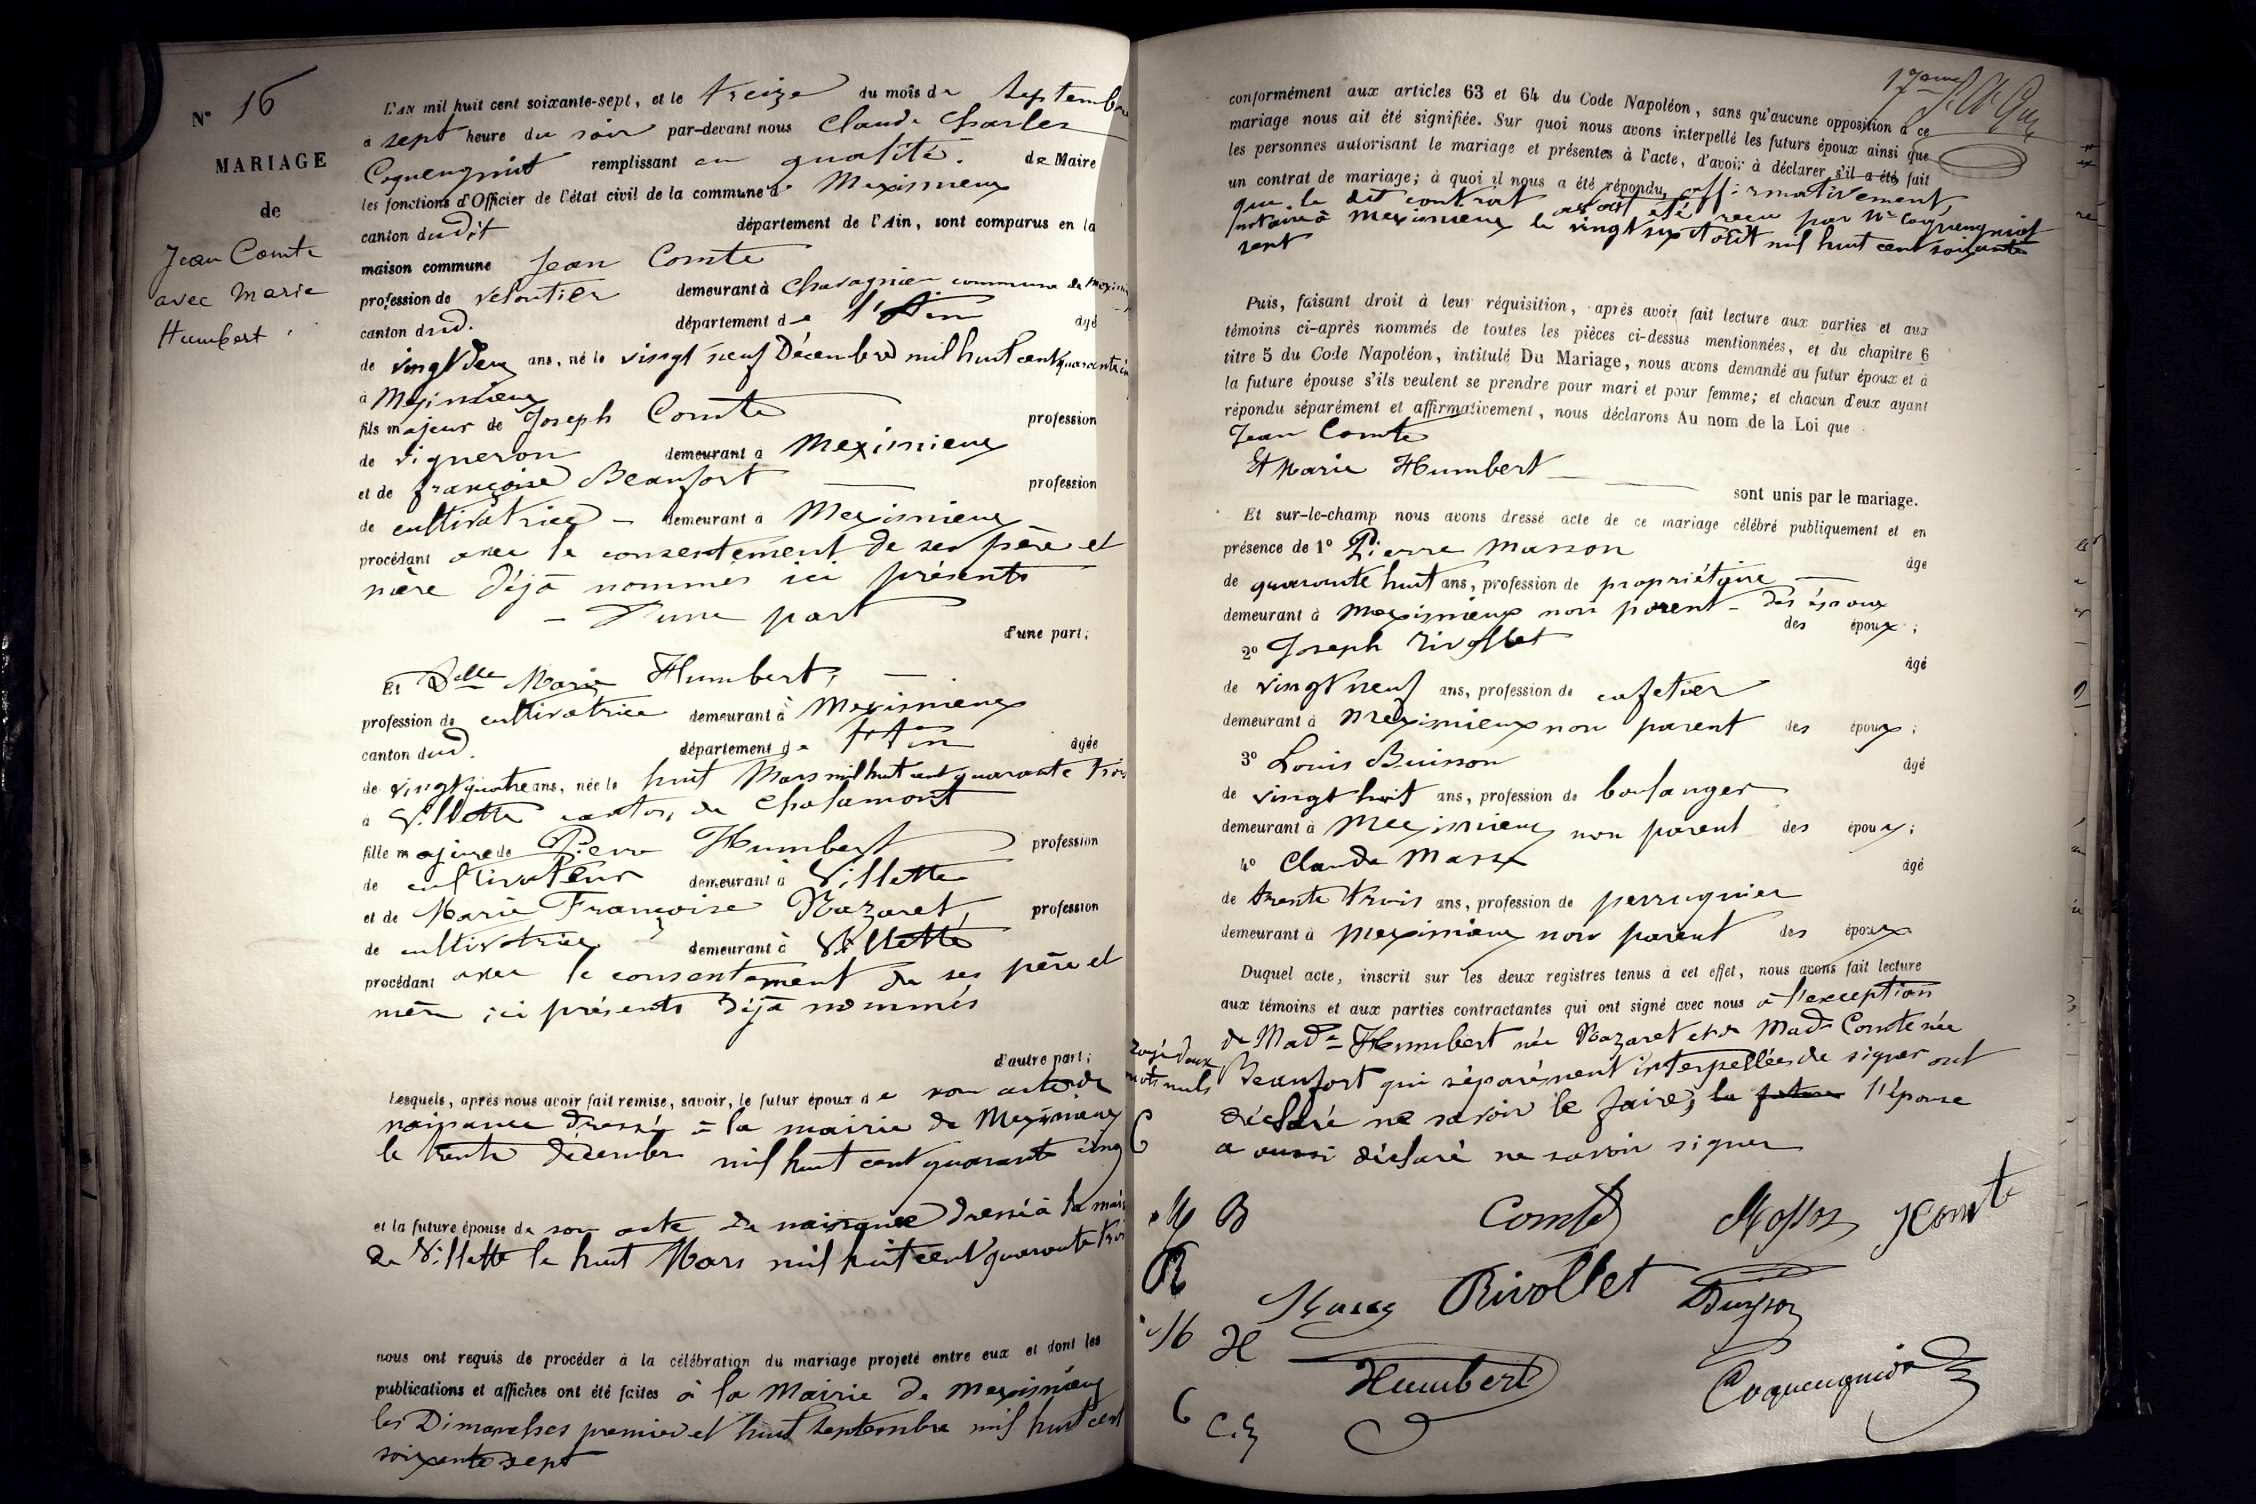 N° 16
MARIAGE
de
Jean Comte
avec Marie
Humbert.
L'AN mil huit cent soixante-sept, et le treize du mois de Septembre
à sept heure du soir par-devant nous Claude Charles
Coquengniot remplissant en qualité. de Maire
les fonctions d'Officier de l'état civil de la commune de Meximieux
canton dudit département de l'Ain, sont comparus en la
maison commune Jean Comte
profession de veloutier demeurant à Chavagnieu commune de Mexim
canton dud. département de l'Ain âgé
de vingt deux ans, né le vingt neuf Décembre mil huit cent quarante cin
à Meximieux
fils majeur de Joseph Comte profession
de vigneron demeurant à Meximieux
et de françoise Beaufort profession
de cultivatrice demeurant à Meximieux
procédant avec le consentement de ses père et
mère déjà nommés ici présents
— d'une part
d'une part;
Et Delle Marie Humbert,
profession de cultivatrice demeurant à Meximieux
canton dud. département de l'Ain âgée
de vingt quatre ans, née le huit Mars mil huit cent quarante trois
à Villette canton de Chalamont
fille majeure de Pierre Humbert profession
de cultivateur demeurant à Villette
et de Marie Françoise Nazaret, profession
de cultivatrice demeurant à Villette
procédant avec le consentement de ses père et
mère ici présents déjà nommés
d'autre part;
Lesquels, après nous avoir fait remise, savoir, le futur époux de son acte de
naissance dressé à la mairie de Meximieux
le trente décembre mil huit cent quarante cinq
et la future épouse de son acte de naissance dressé à la mai
de Villette le huit Mars mil huit cent quarante troi
nous ont requis de procéder à la célébration du mariage projeté entre eux et dont les
publications et affiches ont été faites à la Mairie de Meximieux
les Dimanches premier et huit septembre mil huit cent
soixante sept
conformément aux articles 63 et 64 du Code Napoléon, sans qu'aucune opposition à ce
mariage nous ait été signifiée. Sur quoi nous avons interpellé les futurs époux ainsi que
les personnes autorisant le mariage et présentes à l'acte, d'avoir à déclarer s'il a été fait
un contrat de mariage; à quoi il nous a été répondu affirmativement
que le dit contrat avait été reçu par Me Coquengniot
notaire à Meximieux le vingt six Août mil huit cent soixante
sept
Puis, faisant droit à leur réquisition, après avoir fait lecture aux parties et aux
témoins ci-après nommés de toutes les pièces ci-dessus mentionnées, et du chapitre 6
titre 5 du Code Napoléon, intitulé Du Mariage, nous avons demandé au futur époux et à
la future épouse s'ils veulent se prendre pour mari et pour femme; et chacun d'eux ayant
répondu séparément et affirmativement, nous déclarons Au nom de la Loi que
Jean Comte
Et Marie Humbert
sont unis par le mariage.
Et sur-le-champ nous avons dressé acte de ce mariage célébré publiquement et en
présence de 1° Pierre Masson âgé
de quarante huit ans, profession de propriétaire
demeurant à Meximieux non parent des époux
des époux;
2° Joseph Rivollet âgé
de vingt neuf ans, profession de cafetier
demeurant à Meximieux non parent des époux;
3° Louis Buisson âgé
de vingt huit ans, profession de boulanger
demeurant à Meximieux non parent des époux;
4° Claude Massy âgé
de trente trois ans, profession de perruquier
demeurant à Meximieux non parent des époux
Duquel acte, inscrit sur les deux registres tenus à cet effet, nous avons fait lecture
aux témoins et aux parties contractantes qui ont signé avec nous à l'exception
de Made Humbert née Nazaret et de Made Comte née
Beaufort qui séparément interpellées de signer ont
déclaré ne savoir le faire, la future l'épouse
a aussi déclaré ne savoir signer
rayé deux
mots nuls
Comte Masson JComte
Massy Rivollet Buisson
Humbert Coquengniot